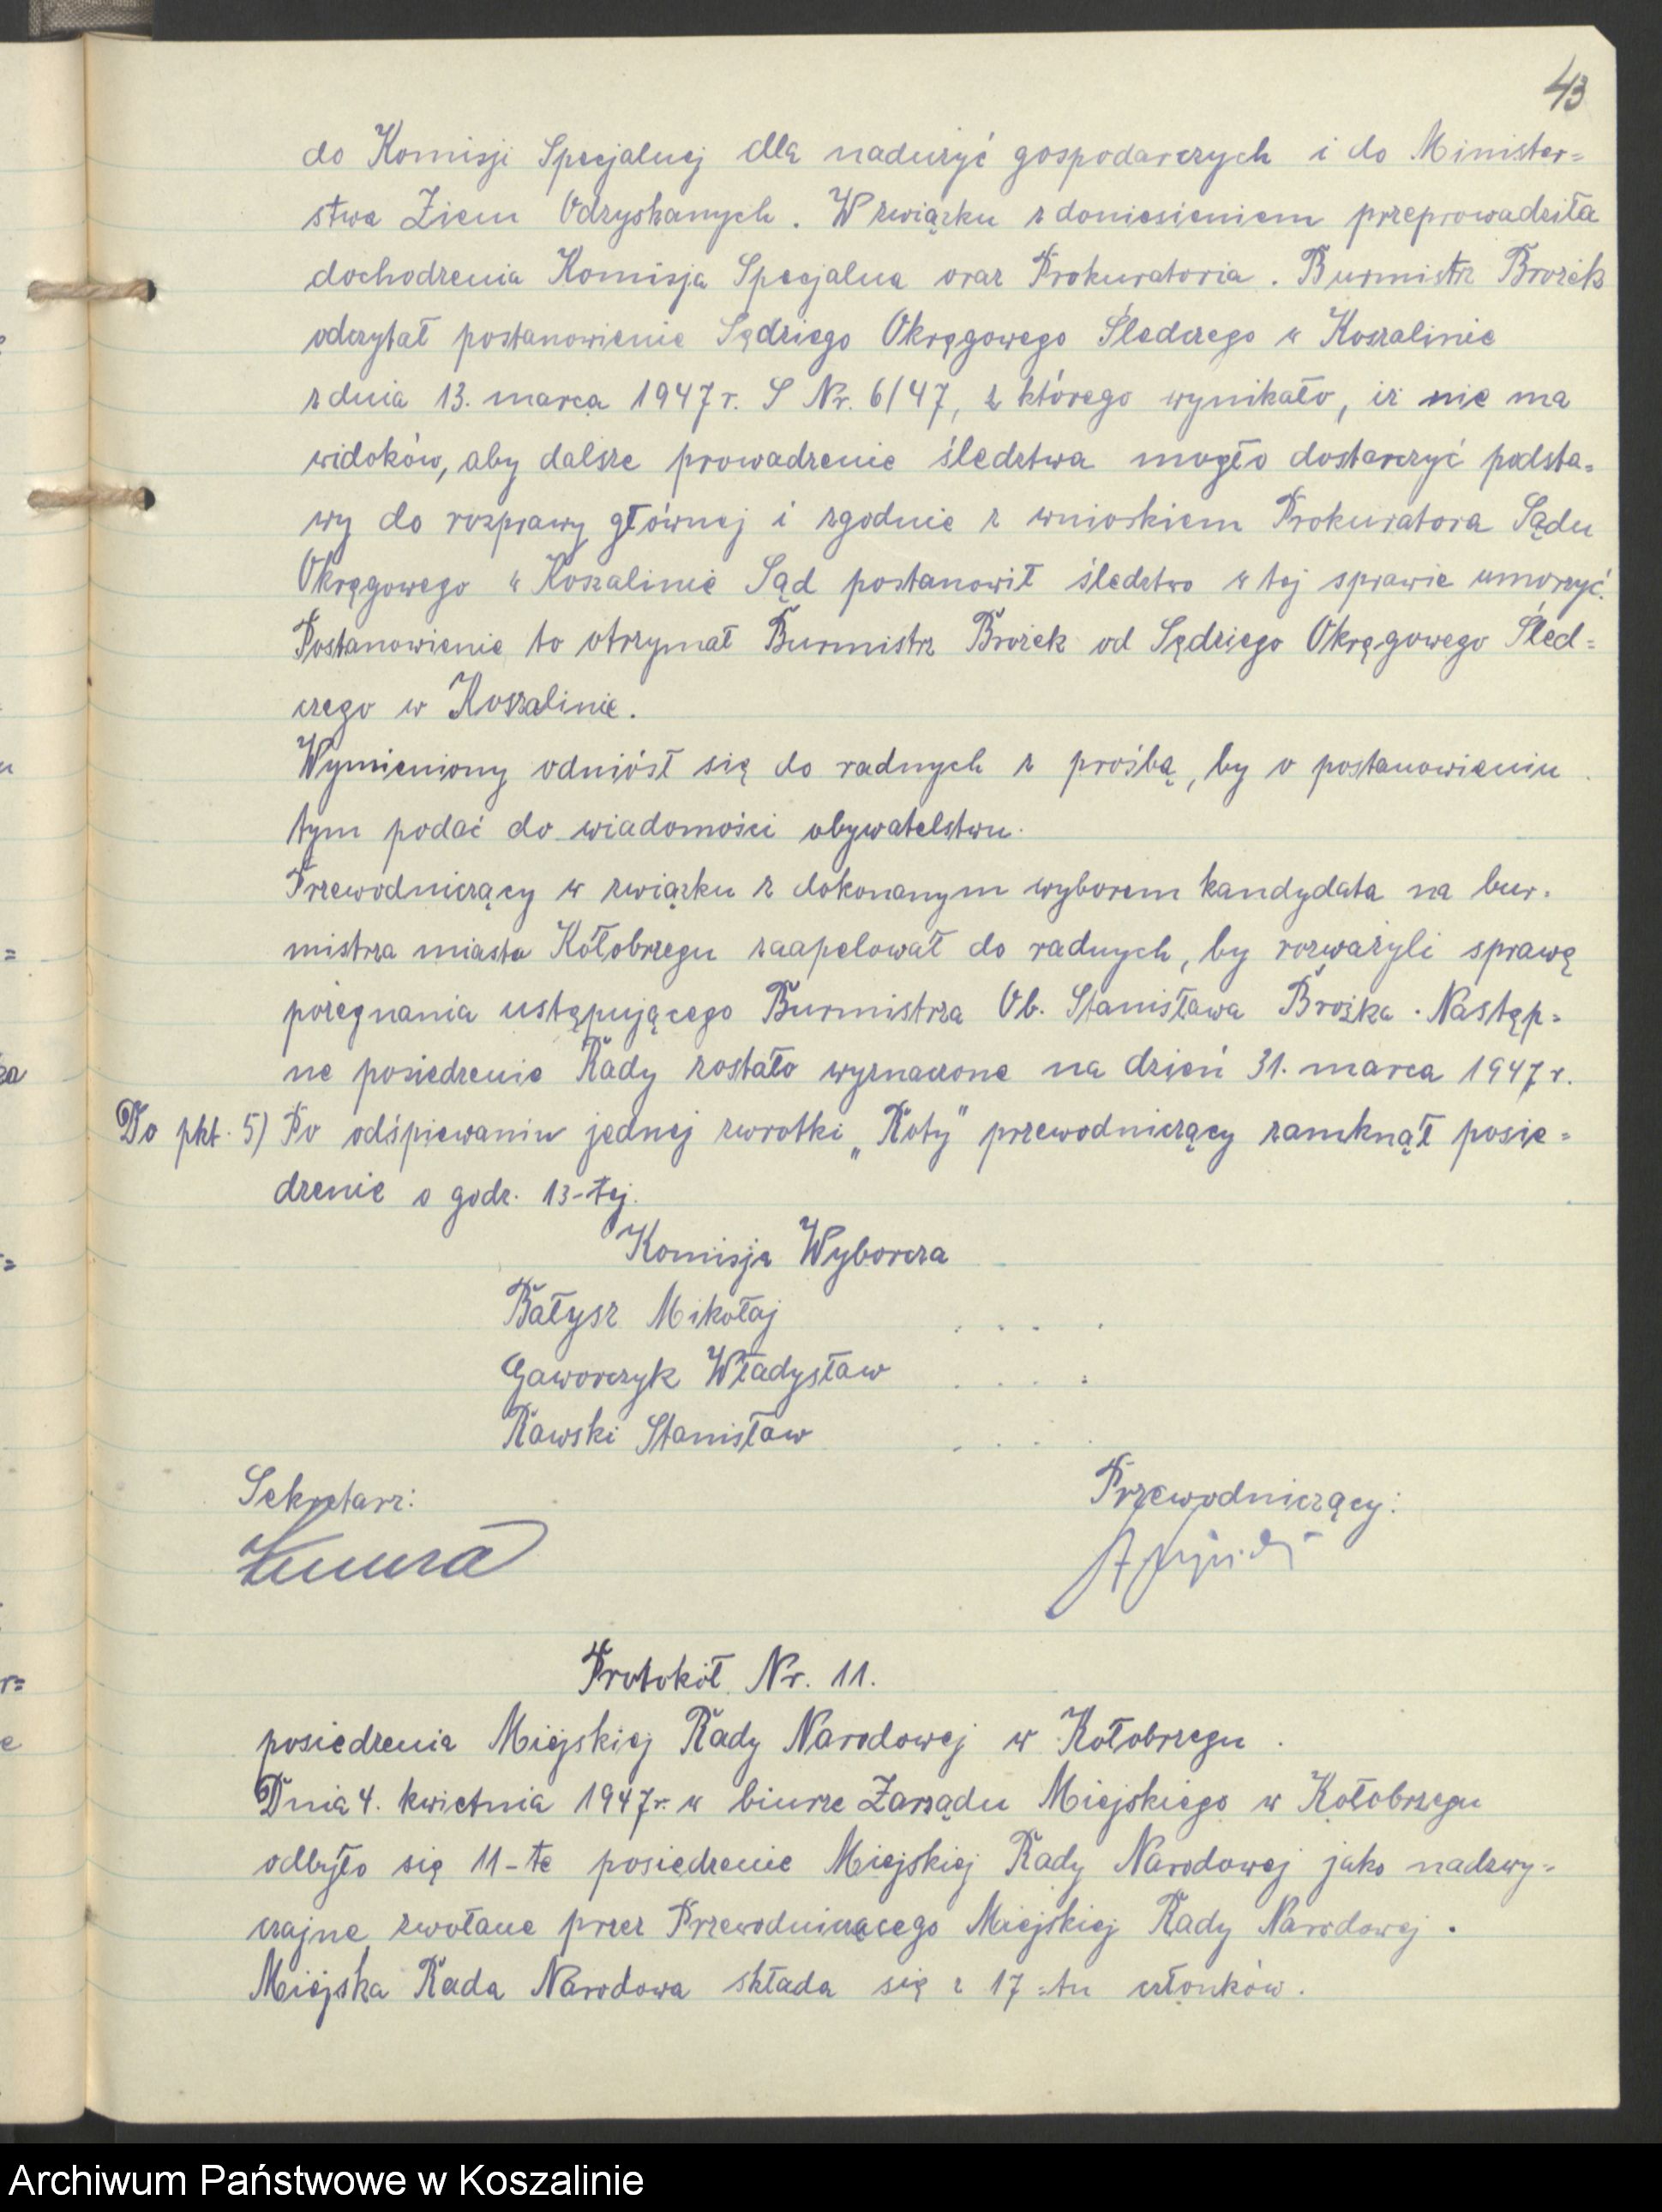 43
do Komisji Specjalnej dla nadużyć gospodarczych i do Minister=
stwa Ziem Odzyskanych. W związku z doniesieniem przeprowadziła
dochodzenia Komisja Specjalna oraz Prokuratoria. Burmistrz Brożek
odczytał postanowienie Sędziego Okręgowego Śledczego w Koszalinie
z dnia 13. marca 1947 r. S Nr. 6/47, z którego wynikało, iż nie ma
widoków, aby dalsze prowadzenie śledztwa mogło dostarczyć podsta=
wy do rozprawy głównej i zgodnie z wnioskiem Prokuratora Sądu
Okręgowego w Koszalinie Sąd postanowił śledztwo w tej sprawie umorzyć.
Postanowienie to otrzymał Burmistrz Brożek od Sędziego Okręgowego Śled=
czego w Koszalinie.
Wymieniony odniósł się do radnych z prośbą, by o postanowieniu
tym podać do wiadomości obywatelstwu.
Przewodniczący w związku z dokonanym wyborem kandydata na bur.
mistrza miasta Kołobrzegu zaapelował do radnych, by rozważyli sprawę
pożegnania ustępującego Burmistrza Ob. Stanisława Brożka. Następ=
ne posiedzenie Rady zostało wyznaczone na dzień 31. marca 1947 r.
Do pkt. 5) Po odśpiewaniu jednej zwrotki „Roty" przewodniczący zamknął posie=
dzenie o godz. 13-tej.
Komisja Wyborcza
Bałysz Mikołaj . . . .
Gaworczyk Władysław . . . :
Rawski Stanisław . . . .
Sekretarz: Przewodniczący:
Protokół Nr. 11.
posiedzenia Miejskiej Rady Narodowej w Kołobrzegu.
Dnia 4. kwietnia 1947 r. w biurze Zarządu Miejskiego w Kołobrzegu
odbyło się 11-te posiedzenie Miejskiej Rady Narodowej jako nadzwy=
czajne zwołane przez Przewodniczącego Miejskiej Rady Narodowej.
Miejska Rada Narodowa składa się z 17=tu członków.
Archiwum Państwowe w Koszalinie